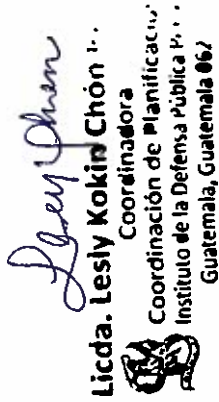 Licda. Lesly Kokin Chón
Coordinadora
Coordinación de Planificación
Instituto de la Defensa Pública P
Guatemala, Guatemala 06